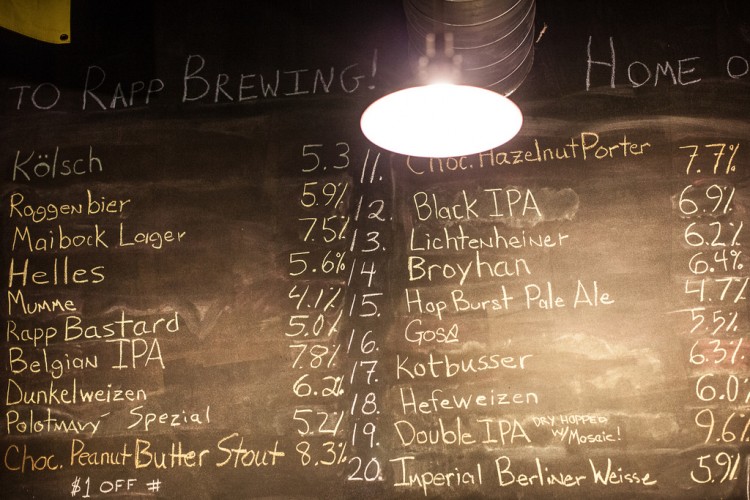 TO RAPP BREWING!
HOME O
Kölsch 5.3
Roggenbier 5.9%
Maibock Lager 7.5%
Helles 5.6%
Mumme 4.1%
Rapp Bastard 5.0%
Belgian IPA 7.8%
Dunkelweizen 6.2%
Polotmavy Spezial 5.2%
Choc. Peanut Butter Stout 8.3%
$1 OFF #
11. Choc. Hazelnut Porter 7.7%
12. Black IPA 6.9%
13. Lichtenheiner 6.2%
14 Broyhan 6.4%
15. Hop Burst Pale Ale 4.7%
16. Gose 5.5%
17. Kotbusser 6.3%
18. Hefeweizen 6.0%
19. Double IPA DRY HOPPED W/Mosaic! 9.6%
20. Imperial Berliner Weisse 5.9%